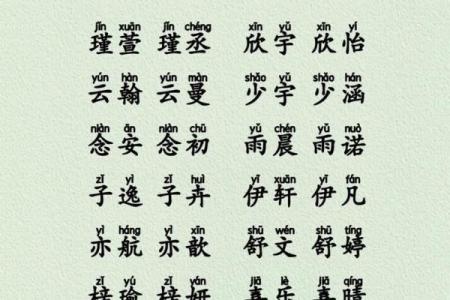 jǐn xuān jǐn chéng xīn yǔ xīn yí
瑾萱 瑾丞 欣宇 欣怡
yún hàn yún màn shǎo yǔ shǎo hán
云翰 云曼 少宇 少涵
niàn ān niàn chū yǔ chén yǔ nuò
念安 念初 雨晨 雨诺
zǐ yì zǐ huì yī xuān yī fán
子逸 子卉 伊轩 伊凡
yì háng yì xīn shū wén shū tíng
亦航 亦歆 舒文 舒婷
zǐ yú zǐ yán jiā lè jiā qíng
梓瑜 梓妍